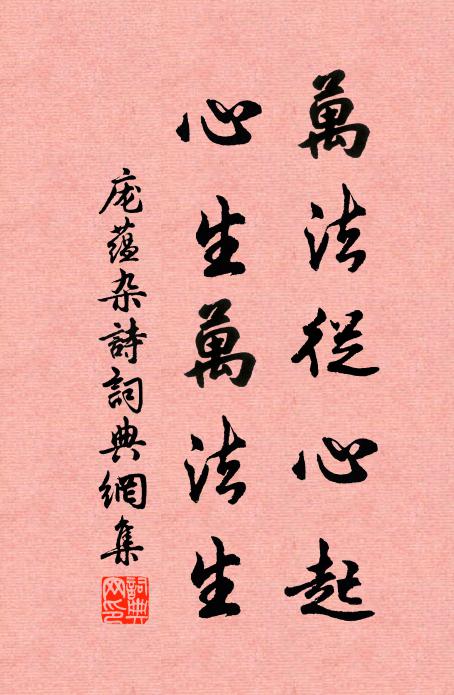 萬法從心起
心生萬法生
庞蕴杂詩詞典網集
詞典网印